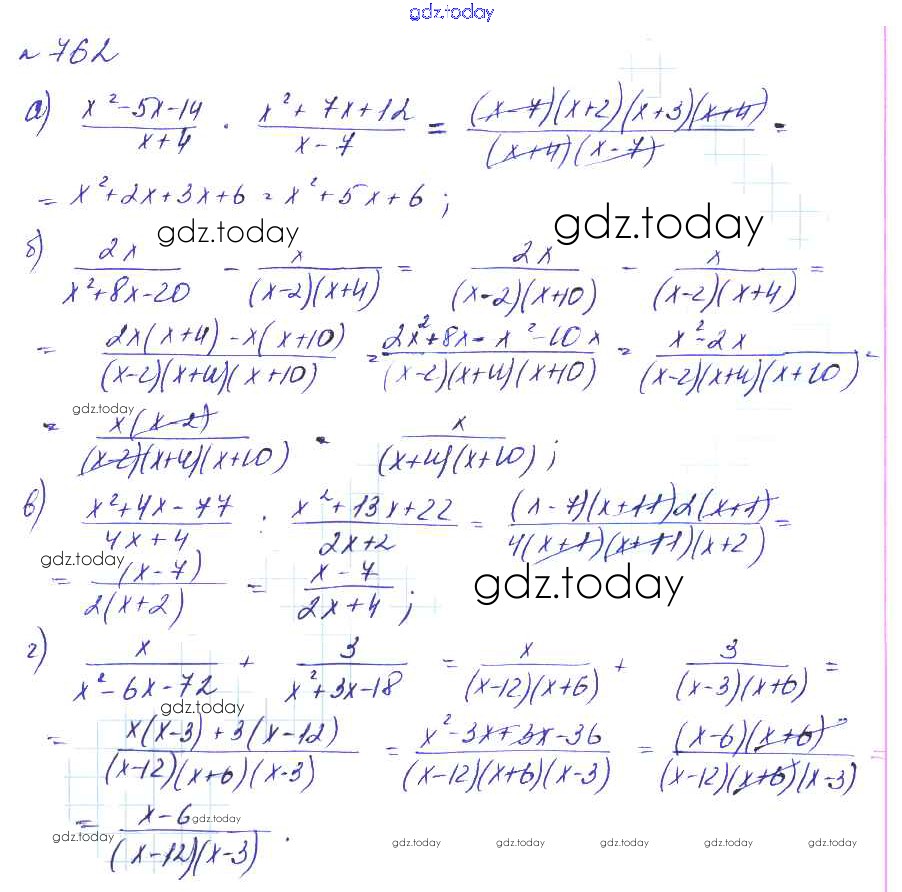 gdz.today
№ 762
а) (x²-5x-14)/(x+4) · (x²+7x+12)/(x-7) = ((x-7)(x+2)(x+3)(x+4))/((x+4)(x-7)) =
= x²+2x+3x+6 = x²+5x+6 ;
gdz.today gdz.today
б) 2x/(x²+8x-20) - x/((x-2)(x+4)) = 2x/((x-2)(x+10)) - x/((x-2)(x+4)) =
= (2x(x+4)-x(x+10))/((x-2)(x+4)(x+10)) = (2x²+8x-x²-10x)/((x-2)(x+4)(x+10)) = (x²-2x)/((x-2)(x+4)(x+10)) =
gdz.today
= (x(x-2))/((x-2)(x+4)(x+10)) = x/((x+4)(x+10)) ;
в) (x²+4x-77)/(4x+4) : (x²+13x+22)/(2x+2) = ((x-7)(x+11)2(x+1))/(4(x+1)(x+11)(x+2)) =
gdz.today gdz.today
= (x-7)/(2(x+2)) = (x-7)/(2x+4) ;
г) x/(x²-6x-72) + 3/(x²+3x-18) = x/((x-12)(x+6)) + 3/((x-3)(x+6)) =
gdz.today
= (x(x-3)+3(x-12))/((x-12)(x+6)(x-3)) = (x²-3x+3x-36)/((x-12)(x+6)(x-3)) = ((x-6)(x+6))/((x-12)(x+6)(x-3)) =
gdz.today gdz.today
= (x-6)/((x-12)(x-3)) .
gdz.today gdz.today gdz.today gdz.today gdz.today